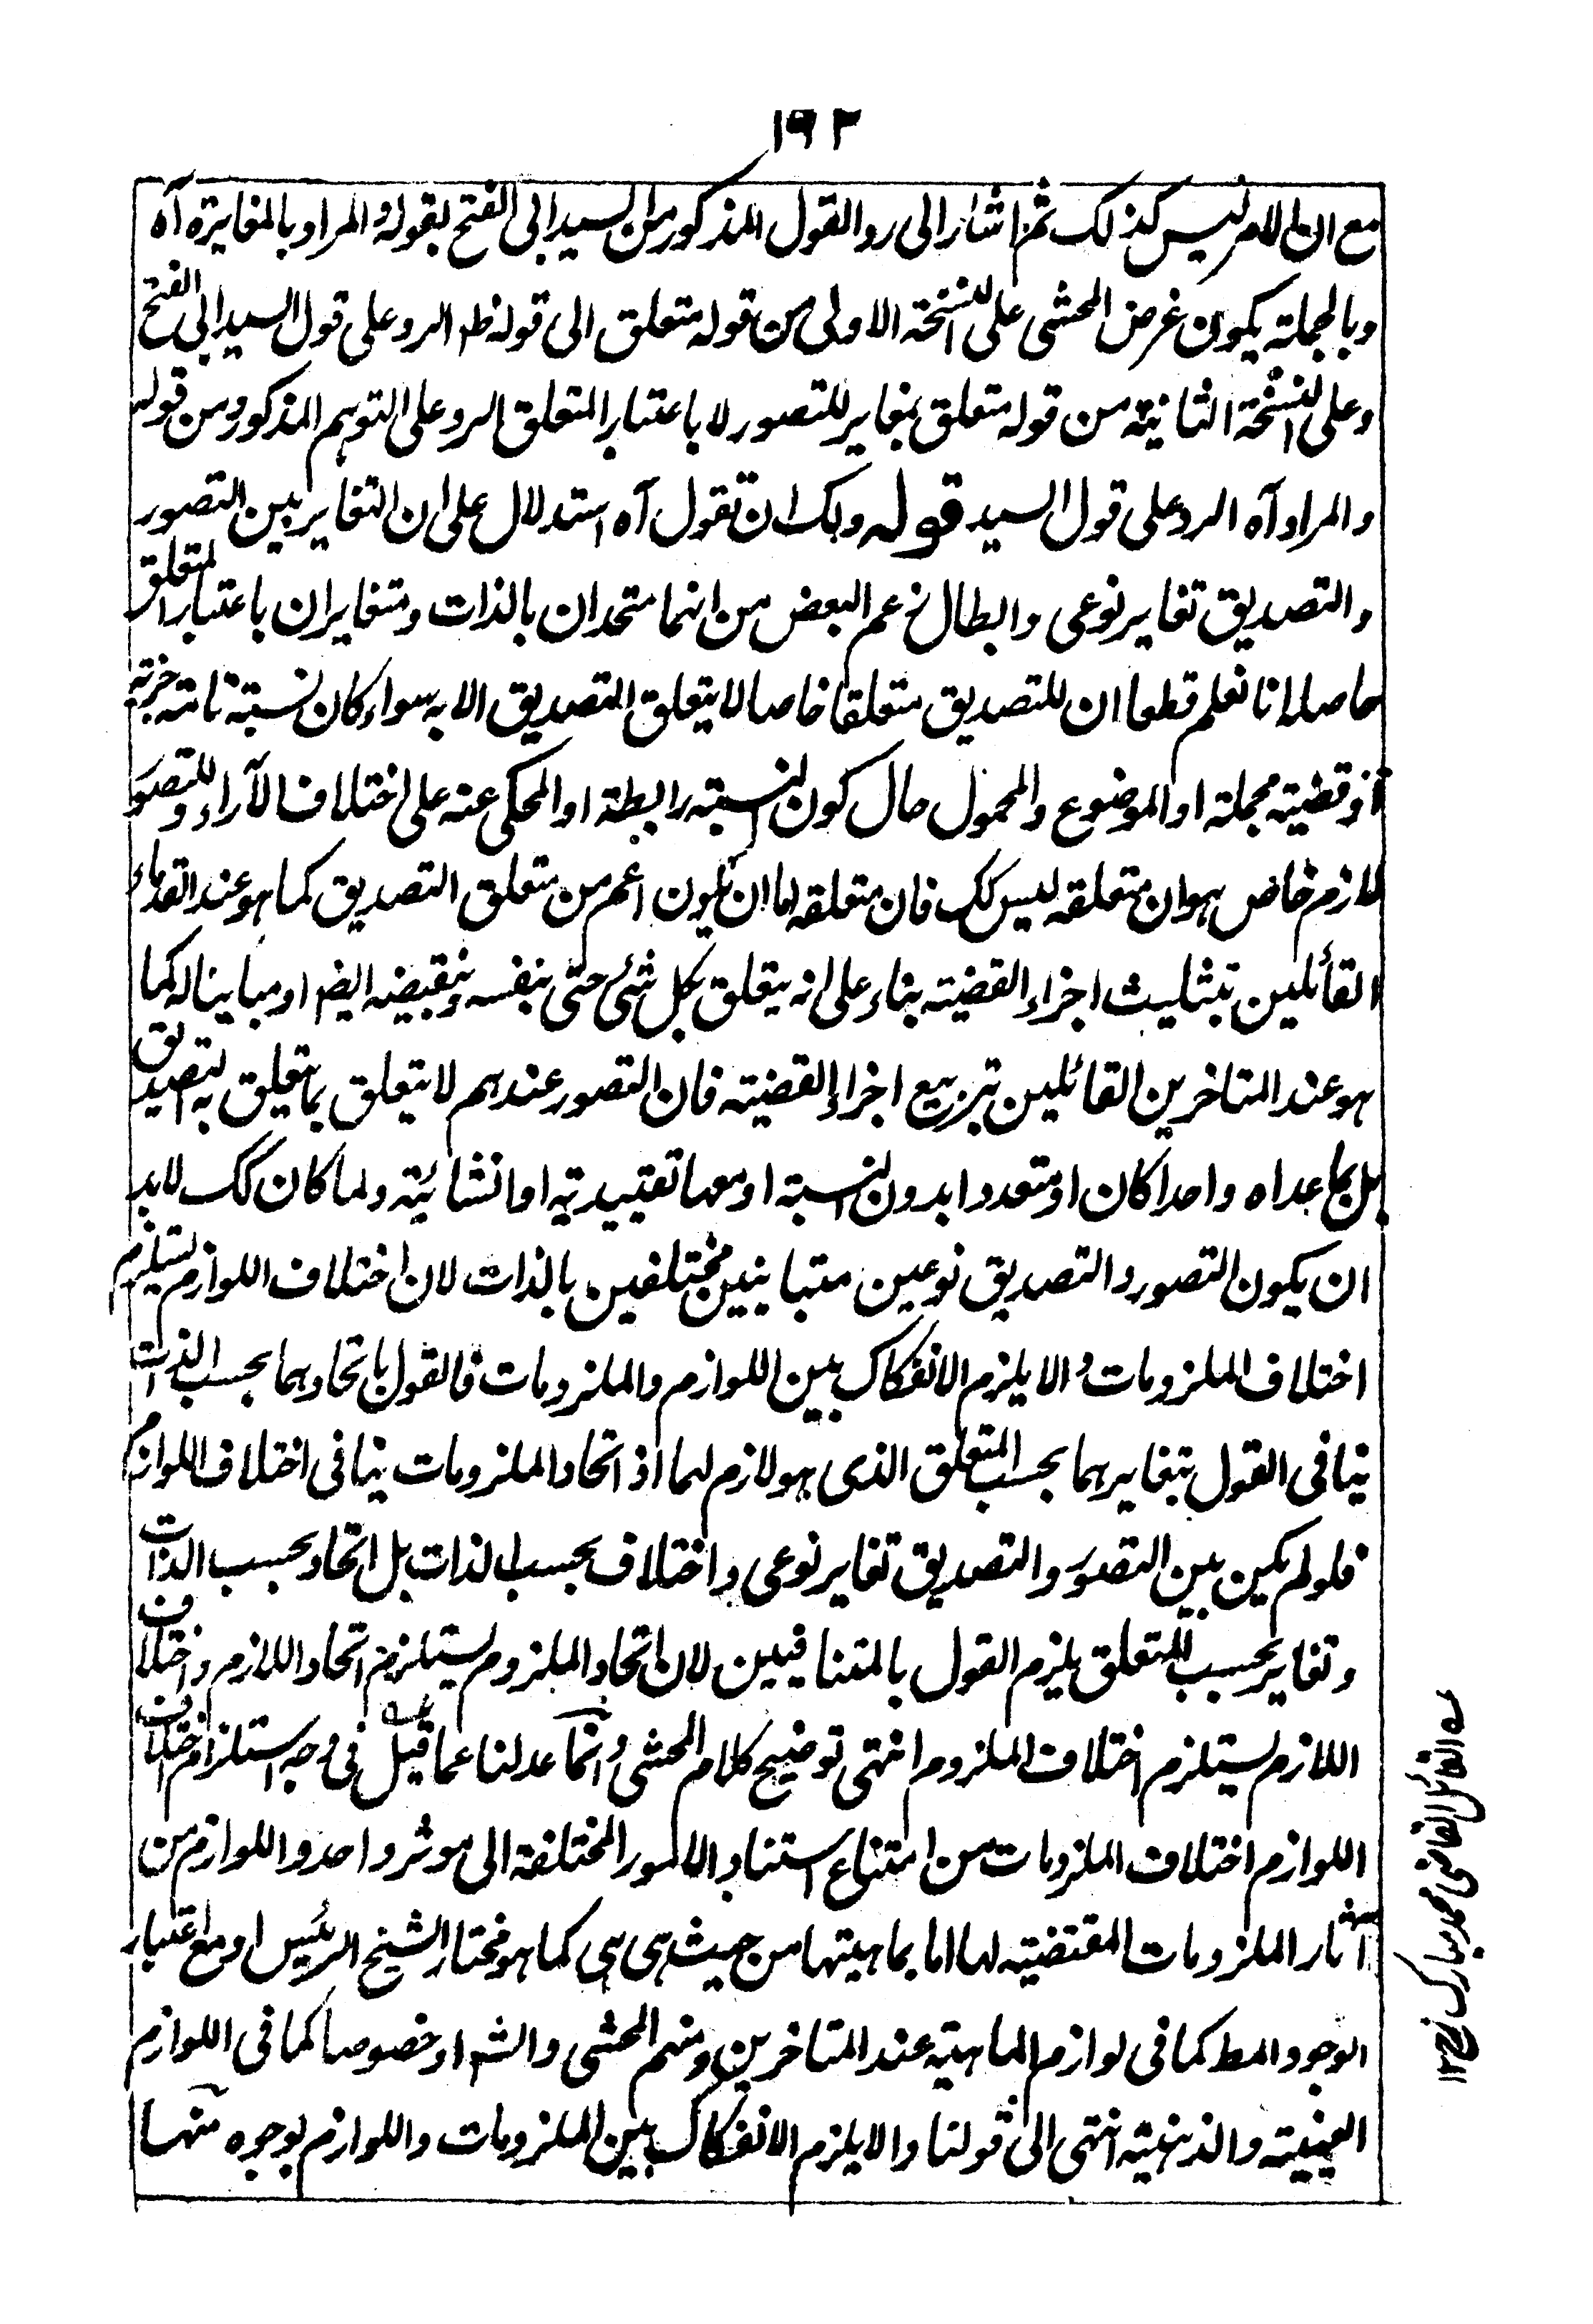 ١٦٢
مع ان الامر ليس كذلك ثم اشار الى رد القول المذكور من السيد ابى الفتح بقوله والمراد بالمغايرة آه
وبالجملة يكون غرض المحشى على النسخة الاولى من قوله متعلق الى قوله ظ الرد على قول السيد ابى الفتح
وعلى النسخة الثانية من قوله متعلق بمغاير للتصور لا باعتبار المتعلق الرد على التوهم المذكور ومن قوله
والمراد آه الرد على قول السيد قوله ولك ان تقول آه استدلال على ان التغاير بين التصور
والتصديق تغاير نوعى وابطال زعم البعض من انهما متحدان بالذات ومتغايران باعتبار المتعلق
حاصله انا نعلم قطعا ان للتصديق متعلقا خاصا لا يتعلق التصديق الا به سواء كان نسبة تامة خبرية
او قضية مجملة او الموضوع والمحمول حال كون النسبة رابطة او المحكى عنه على اختلاف الآراء وللتصور
لازم خاص هو ان متعلقه ليس كك فان متعلقه اما ان يكون اعم من متعلق التصديق كما هو عند القدماء
القائلين بتثليث اجزاء القضية بناء على انه يتعلق بكل شئ حتى بنفسه ونقيضه ايض او مباينا له كما
هو عند المتاخرين القائلين بتربيع اجزاء القضية فان التصور عندهم لا يتعلق بما يتعلق به التصديق
بل بما عداه واحدا كان او متعددا بدون النسبة او معها تقييدية او انشائية ولما كان كك لابد
ان يكون التصور والتصديق نوعين متباينين مختلفين بالذات لان اختلاف اللوازم يستلزم
اختلاف الملزومات والا يلزم الانفكاك بين اللوازم والملزومات فالقول باتحادهما بحسب الذات
ينافى القول بتغايرهما بحسب المتعلق الذى هو لازم لهما اذ اتحاد الملزومات ينافى اختلاف اللوازم
فلو لم يكن بين التصور والتصديق تغاير نوعى واختلاف بحسب الذات بل اتحاد بحسب الذات
وتغاير بحسب المتعلق يلزم القول بالمتنافيين لان اتحاد الملزوم يستلزم اتحاد اللازم واختلاف
اللازم يستلزم اختلاف الملزوم انتهى توضيح كلام المحشى وانما عدلنا عما قيل فى وجه استلزام اختلاف
اللوازم اختلاف الملزومات من امتناع استناد الامور المختلفة الى موثر واحد واللوازم من
آثار الملزومات المقتضية لها اما بماهيتها من حيث هى هى كما هو مختار الشيخ الرئيس او مع اعتبار
الوجود المط كما فى لوازم الماهية عند المتاخرين ومنهم المحشى والشه او خصوصا كما فى اللوازم
العينية والذهنية انتهى الى قولنا والا يلزم الانفكاك بين الملزومات واللوازم بوجوه منها
القائل القاضى محمد مبارك ١٢